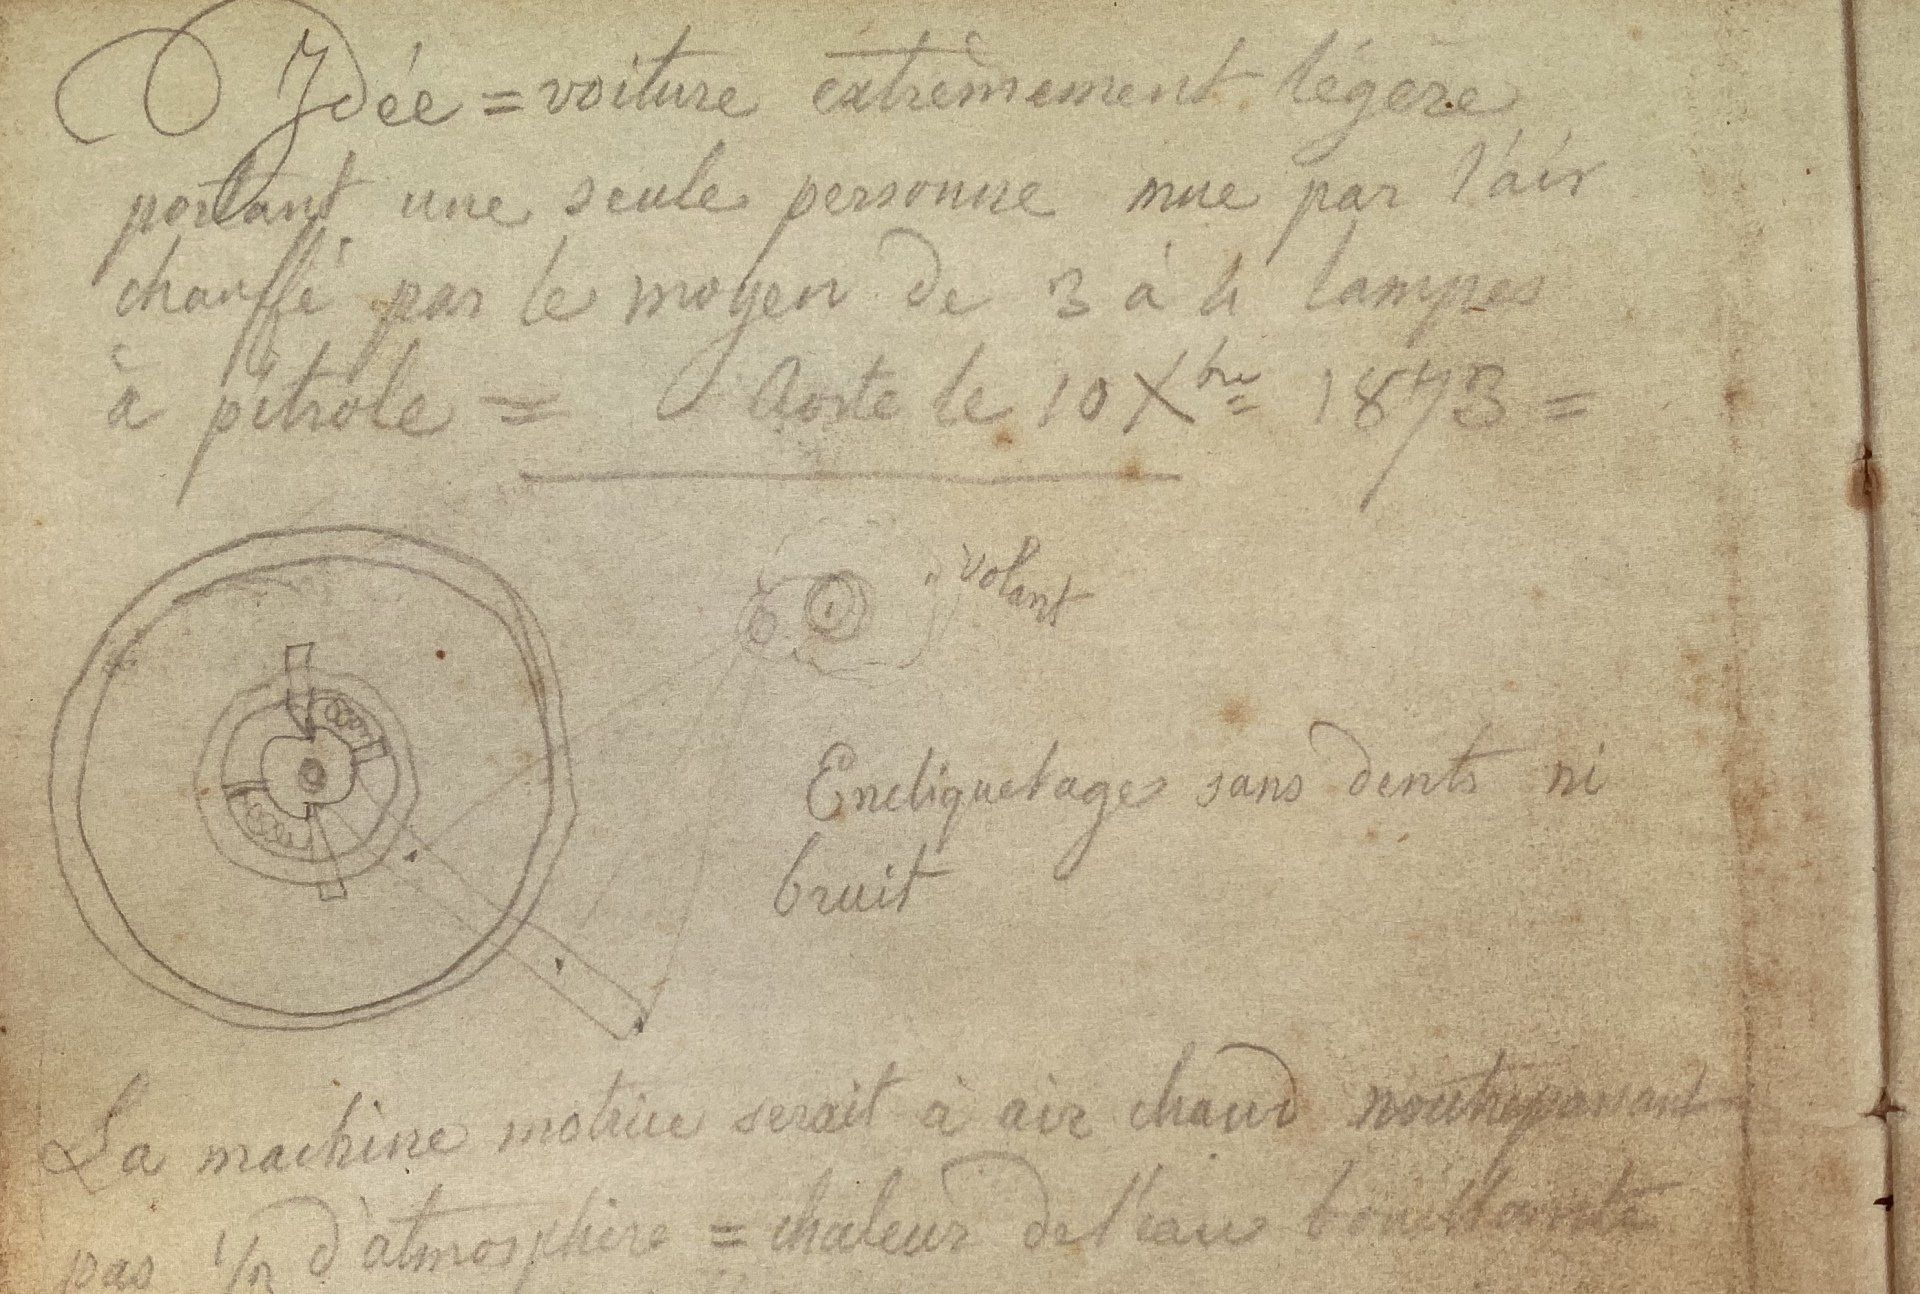 Idée = voiture extrêmement légère
portant une seule personne mue par l'air
chauffé par le moyen de 3 à 4 lampes
à pétrole = Aoste le 10 Xbre 1873 =
volant
Encliquetage sans dents ni
bruit
La machine motrice serait à air chaud n'outrepassant
pas 1/2 d'atmosphère = chaleur de l'eau bouillante